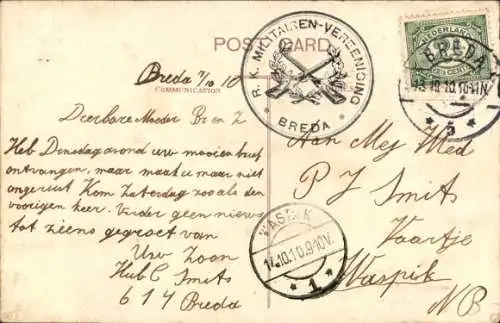 POST CARD
COMMUNICATION
R. K. MILITAIREN-VEREENIGING
BREDA
NEDERLAND
BREDA
5
Breda 7/10 10
Dierbare Moeder Br en Z
Heb Dinsdagavond uw mooien brief
ontvangen, maar maak u maar niet
ongerust Kom Zaterdag zoo als den
voorigen keer. Verder geen nieuws
tot ziens gegroet van
Uw Zoon
Hub C Smits
617 Breda
WASPIK
14.10.10.9-10V.
1
Aan Mej Wed
P J Smits
Vaartje
Waspik
NB